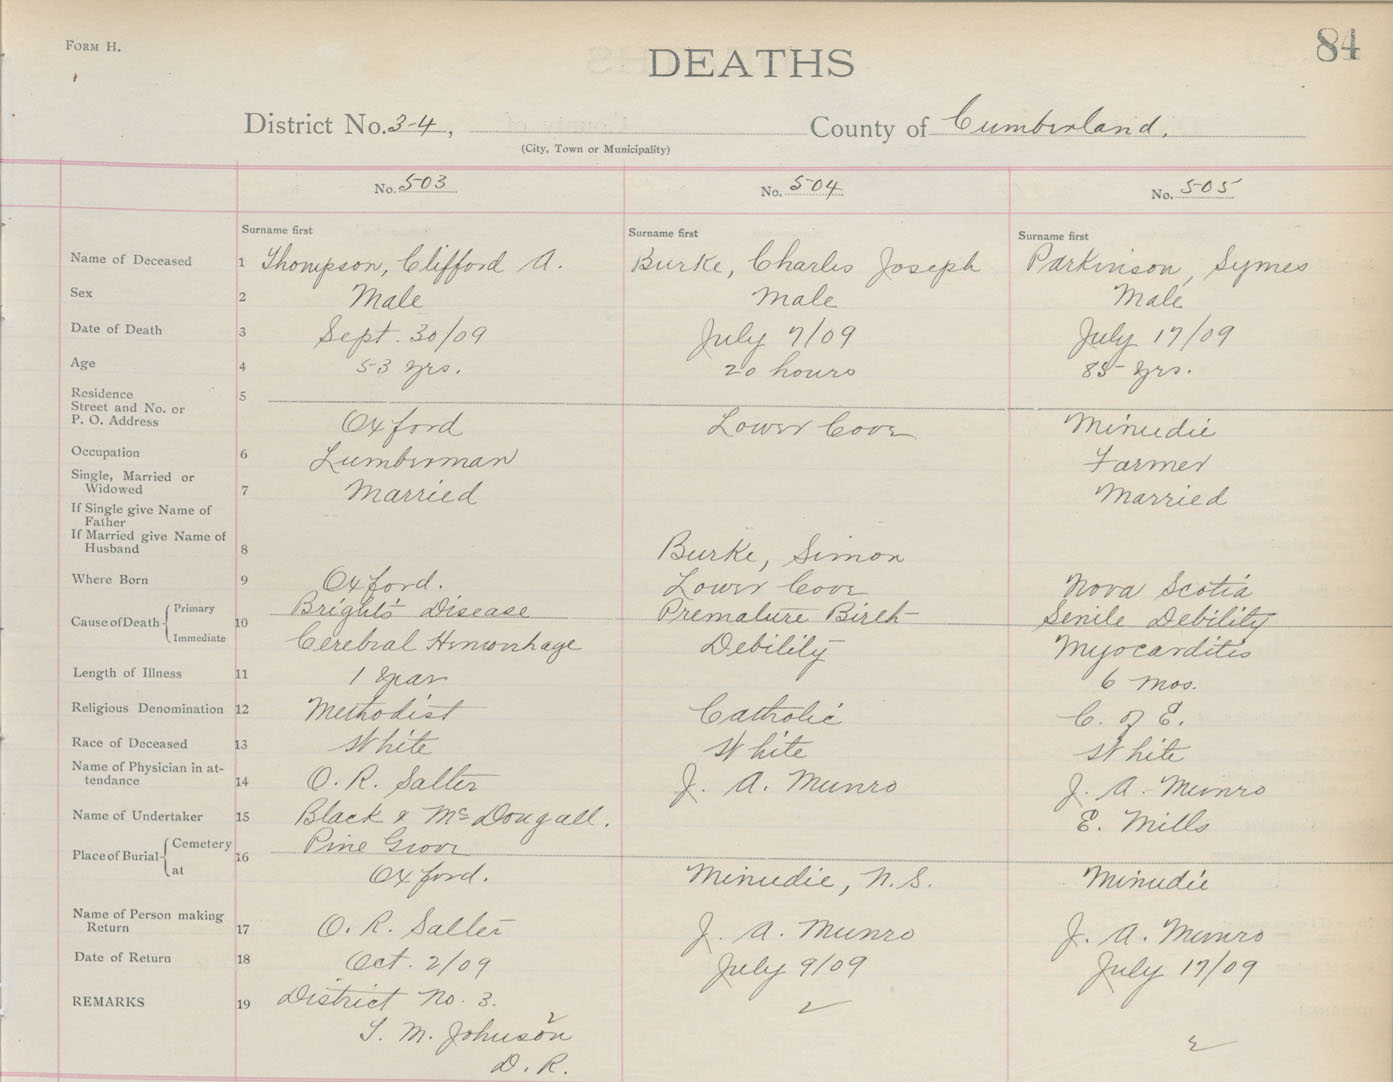 FORM H.
84
DEATHS
District No. 3-4, County of Cumberland.
(City, Town or Municipality)
No. 503 No. 504 No. 505
Surname first Surname first Surname first
Name of Deceased 1 Thompson, Clifford A. Burke, Charles Joseph Parkinson, Symes
Sex 2 Male Male Male
Date of Death 3 Sept. 30/09 July 7/09 July 17/09
Age 4 53 yrs. 20 hours 85 yrs.
Residence 5
Street and No. or
P. O. Address Oxford Lower Cove Minudie
Occupation 6 Lumberman Farmer
Single, Married or
Widowed 7 Married Married
If Single give Name of
Father
If Married give Name of
Husband 8 Burke, Simon
Where Born 9 Oxford. Lower Cove Nova Scotia
Cause of Death Primary 10 Bright's Disease Premature Birth Senile Debility
Immediate Cerebral Hemorrhage Debility Myocarditis
Length of Illness 11 1 Year 6 mos.
Religious Denomination 12 Methodist Catholic C. of E.
Race of Deceased 13 White White White
Name of Physician in at-
tendance 14 O. R. Salter J. A. Munro J. A. Munro
Name of Undertaker 15 Black & McDougall. E. Mills
Place of Burial Cemetery 16 Pine Grove
at Oxford. Minudie, N.S. Minudie
Name of Person making
Return 17 O. R. Salter J. A. Munro J. A. Munro
Date of Return 18 Oct. 2/09 July 9/09 July 17/09
REMARKS 19 District No. 3.
T. M. Johnson
D. R.